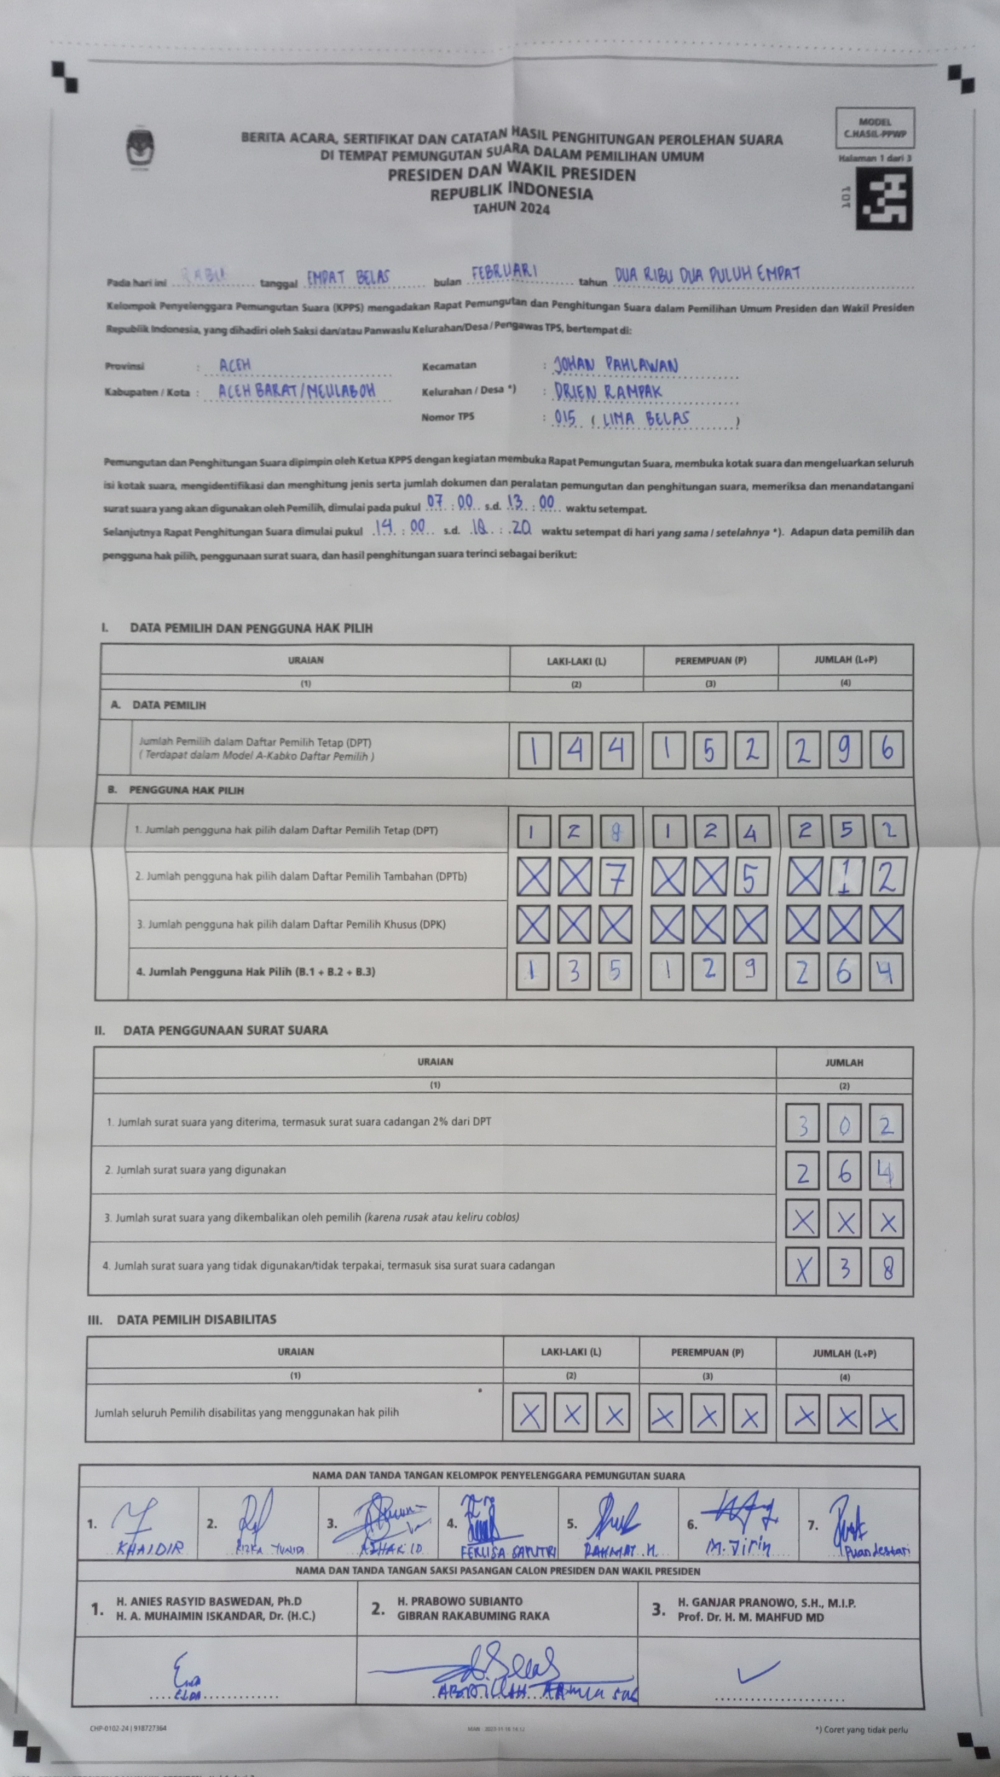 MODEL
C.HASIL-PPWP
Halaman 1 dari 3
101
BERITA ACARA, SERTIFIKAT DAN CATATAN HASIL PENGHITUNGAN PEROLEHAN SUARA
DI TEMPAT PEMUNGUTAN SUARA DALAM PEMILIHAN UMUM
PRESIDEN DAN WAKIL PRESIDEN
REPUBLIK INDONESIA
TAHUN 2024
Pada hari ini RABU tanggal EMPAT BELAS bulan FEBRUARI tahun DUA RIBU DUA PULUH EMPAT
Kelompok Penyelenggara Pemungutan Suara (KPPS) mengadakan Rapat Pemungutan dan Penghitungan Suara dalam Pemilihan Umum Presiden dan Wakil Presiden
Republik Indonesia, yang dihadiri oleh Saksi dan/atau Panwaslu Kelurahan/Desa/ Pengawas TPS, bertempat di:
Provinsi : ACEH Kecamatan : JOHAN PAHLAWAN
Kabupaten / Kota : ACEH BARAT/MEULABOH Kelurahan / Desa *) : DRIEN RAMPAK
Nomor TPS : 015 ( LIMA BELAS )
Pemungutan dan Penghitungan Suara dipimpin oleh Ketua KPPS dengan kegiatan membuka Rapat Pemungutan Suara, membuka kotak suara dan mengeluarkan seluruh
isi kotak suara, mengidentifikasi dan menghitung jenis serta jumlah dokumen dan peralatan pemungutan dan penghitungan suara, memeriksa dan menandatangani
surat suara yang akan digunakan oleh Pemilih, dimulai pada pukul 07 : 00 s.d. 13 : 00 waktu setempat.
Selanjutnya Rapat Penghitungan Suara dimulai pukul 14 : 00 s.d. : 20 waktu setempat di hari yang sama / setelahnya *). Adapun data pemilih dan
pengguna hak pilih, penggunaan surat suara, dan hasil penghitungan suara terinci sebagai berikut:
I. DATA PEMILIH DAN PENGGUNA HAK PILIH
URAIAN LAKI-LAKI (L) PEREMPUAN (P) JUMLAH (L+P)
(1) (2) (3) (4)
A. DATA PEMILIH
Jumlah Pemilih dalam Daftar Pemilih Tetap (DPT) 1 4 4 1 5 2 2 9 6
( Terdapat dalam Model A-Kabko Daftar Pemilih )
B. PENGGUNA HAK PILIH
1. Jumlah pengguna hak pilih dalam Daftar Pemilih Tetap (DPT) 1 2 8 1 2 4 2 5 2
2. Jumlah pengguna hak pilih dalam Daftar Pemilih Tambahan (DPTb) X X 7 X X 5 X 1 2
3. Jumlah pengguna hak pilih dalam Daftar Pemilih Khusus (DPK) X X X X X X X X X
4. Jumlah Pengguna Hak Pilih (B.1 + B.2 + B.3) 1 3 5 1 2 9 2 6 4
II. DATA PENGGUNAAN SURAT SUARA
URAIAN JUMLAH
(1) (2)
1. Jumlah surat suara yang diterima, termasuk surat suara cadangan 2% dari DPT 3 0 2
2. Jumlah surat suara yang digunakan 2 6 4
3. Jumlah surat suara yang dikembalikan oleh pemilih (karena rusak atau keliru coblos) X X X
4. Jumlah surat suara yang tidak digunakan/tidak terpakai, termasuk sisa surat suara cadangan X 3 8
III. DATA PEMILIH DISABILITAS
URAIAN LAKI-LAKI (L) PEREMPUAN (P) JUMLAH (L+P)
(1) (2) (3) (4)
Jumlah seluruh Pemilih disabilitas yang menggunakan hak pilih X X X X X X X X X
NAMA DAN TANDA TANGAN KELOMPOK PENYELENGGARA PEMUNGUTAN SUARA
1. 2. 3. 4. 5. 6. 7.
KHAIDIR RIZKA YUNIA FERLISA SAPUTRI RAHMAT. H. M. Jirin
NAMA DAN TANDA TANGAN SAKSI PASANGAN CALON PRESIDEN DAN WAKIL PRESIDEN
1. H. ANIES RASYID BASWEDAN, Ph.D
H. A. MUHAIMIN ISKANDAR, Dr. (H.C.)
2. H. PRABOWO SUBIANTO
GIBRAN RAKABUMING RAKA
3. H. GANJAR PRANOWO, S.H., M.I.P.
Prof. Dr. H. M. MAHFUD MD
CHP-0102-24 | 918727364
*) Coret yang tidak perlu